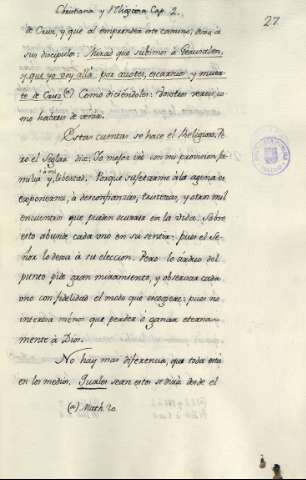 Christiana y Religiosa, Cap. 2.
27
de Cruz, y que al emprender este camino, decia a
sus discipulos: Mirad que subimos a Jerusalen,
y que yo voy allá por azotes, escarnios y muer-
te de Cruz (a) Como diciendoles:
mo habreis de
Estas cuentas se hace el Religioso, Pe-
ro el Seglar dice: Yo mejor con mi provision, fa-
milia, y libertad. Porque sujetarme a la agena
exponerme, a desconfianzas, tristezas, y otros mil
encuentros que pueden ocurrir en la vida. Sobre
esto abunde cada uno en su sentir; pues el Se-
ñor lo dexa a su eleccion. Pero lo arduo del
punto pide gran miramiento, y observar cada
uno con fidelidad el modo que escogiere; pues no
interesa menos que perder ó ganar eterna-
mente à Dios.
No hay mas diferencia, que toda está
en los medios. Quales sean estos se veria desde el
(a) Math. 20.